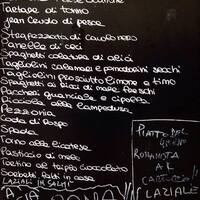 Tartare di tonno
jean Coudo di pesca
Strapazzata di cavolo nero
Vanella di ceci
Spaghetti colatura di alici
Tagliolini calamari e pomodorini secchi
Tagliolini prosciutto limone e timo
Spaghetti ai ricci di mare freschi
Paccheri guanciale e cipolla
Picciola alla lampedusa
Pezzogna
Coda di Rospo
Spada
Tonno alla Cicatese
Pasticcio di mele
Tortino al triplo cioccolato
Sorbetti fatti in casa
LAZIALI IN SALMÌ
PIATTO DEL
GIORNO
ROMANISTA
AL
CARTOCCIO
LAZIALE